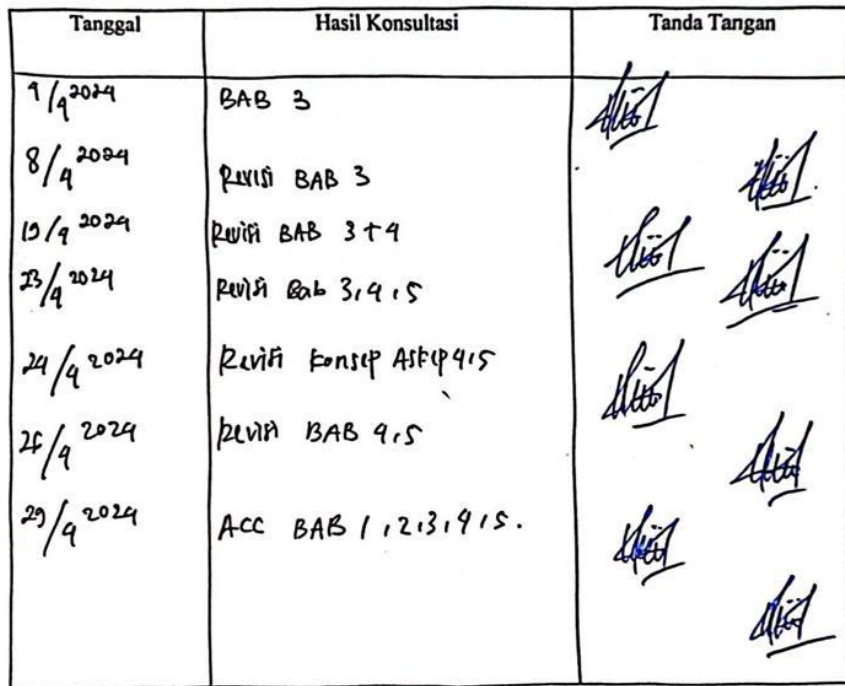 Tanggal Hasil Konsultasi Tanda Tangan
1/4 2024 BAB 3
8/4 2024 Revisi BAB 3
19/4 2024 Revisi BAB 3+4
23/4 2024 Revisi Bab 3,4,5
24/4 2024 Revisi Konsep Askep 4,5
26/4 2024 Revisi BAB 4,5
29/4 2024 ACC BAB 1,2,3,4,5.